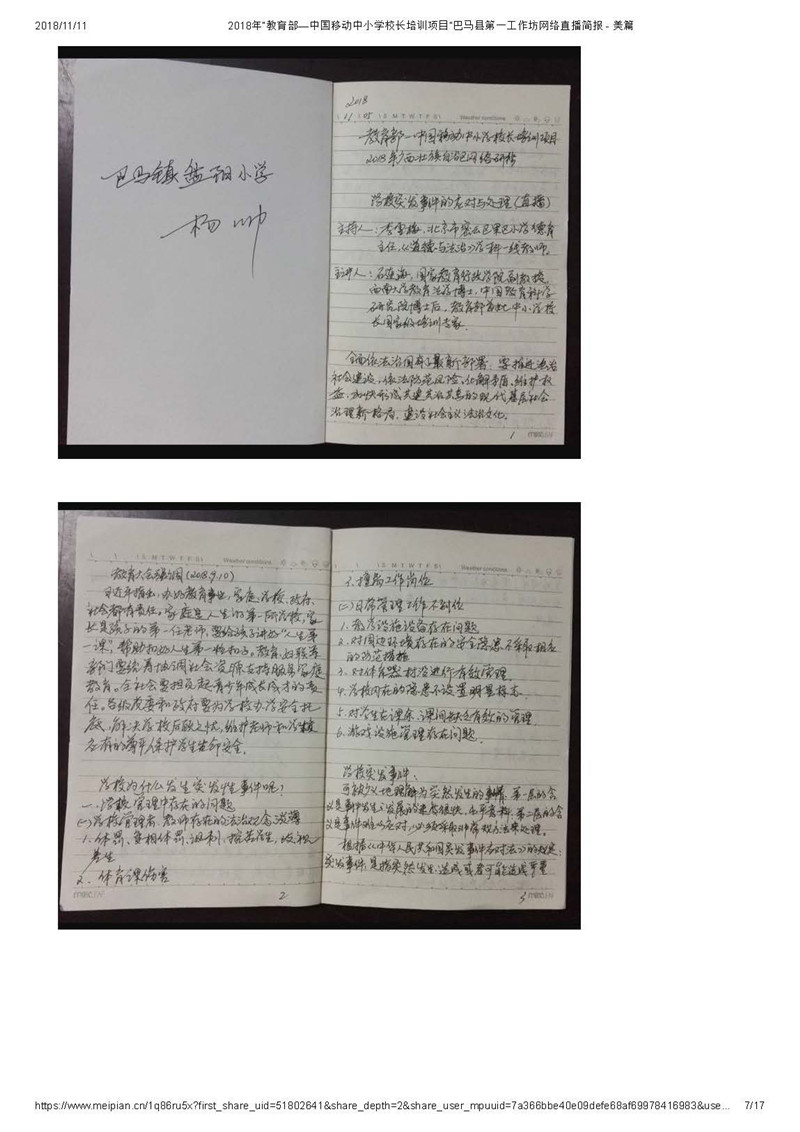 2018/11/11
2018年"教育部—中国移动中小学校长培训项目"巴马县第一工作坊网络直播简报 - 美篇
巴马镇盘阳小学
杨帅
2018
11 05 S M T W T F S Weather conditions
教育部—中国移动中小学校长培训项目
2018年广西壮族自治区网络研修
学校突发事件的应对与处理(直播)
主持人:李雪梅,北京市密云巨各庄小学德育
主任,《道德与法治》学科一线教师。
主讲人: 国家教育行政学院副教授,
西南大学教育法学博士,中国教育科学
研究院博士后,教育部 中小学校
长国家级培训专家。
全面依法治国有了最新部署:要推进法治
社会建设,依法防范风险、化解矛盾、维护权
益,加快形成共建共治共享的现代基层社会
治理新格局,建设社会主义法治文化。
1
S M T W T F S Weather conditions
教育大会强调(2018.9.10)
习近平指出,办好教育事业,家庭、学校、政府、
社会都有责任。家庭是人生的第一所学校,家
长是孩子的第一任老师,要给孩子讲好"人生第
一课",帮助扣好人生第一粒扣子。教育、妇联等
部门要统筹协调社会资源支持服务家庭
教育。全社会要担负起青少年成长成才的责
任。各级党委和政府要为学校办学安全托
底,解决学校后顾之忧,维护老师和学校
应有的尊严,保护学生生命安全。
学校为什么发生突发性事件呢?
一、学校管理中存在的问题
(一)学校管理者、教师存在的法治观念淡薄
1.体罚、变相体罚、讽刺、挖苦学生,歧视
差生
2.体育课伤害
2
S M T W T F S Weather conditions
7.擅离工作岗位
(二)日常管理工作不到位
1.教学设施设备存在问题
2.对周边环境存在的安全隐患不采取相应
的防范措施
3.对体育器材没进行有效管理
4.学校内存的隐患不设置明显标志
5.对学生在课余、课间缺乏有效的管理
6.游戏设施管理存在问题
学校突发事件:
可被广义地理解为突然发生的事情:第一层的含
义是事件发生、发展的速度很快,出乎意料;第二层的含
义是事件难以应对,必须采取非常规方法来处理。
根据《中华人民共和国突发事件应对法》的规定:
突发事件,是指突然发生,造成或者可能造成严重
3
https://www.meipian.cn/1q86ru5x?first_share_uid=51802641&share_depth=2&share_user_mpuuid=7a366bbe40e09defe68af69978416983&use...
7/17